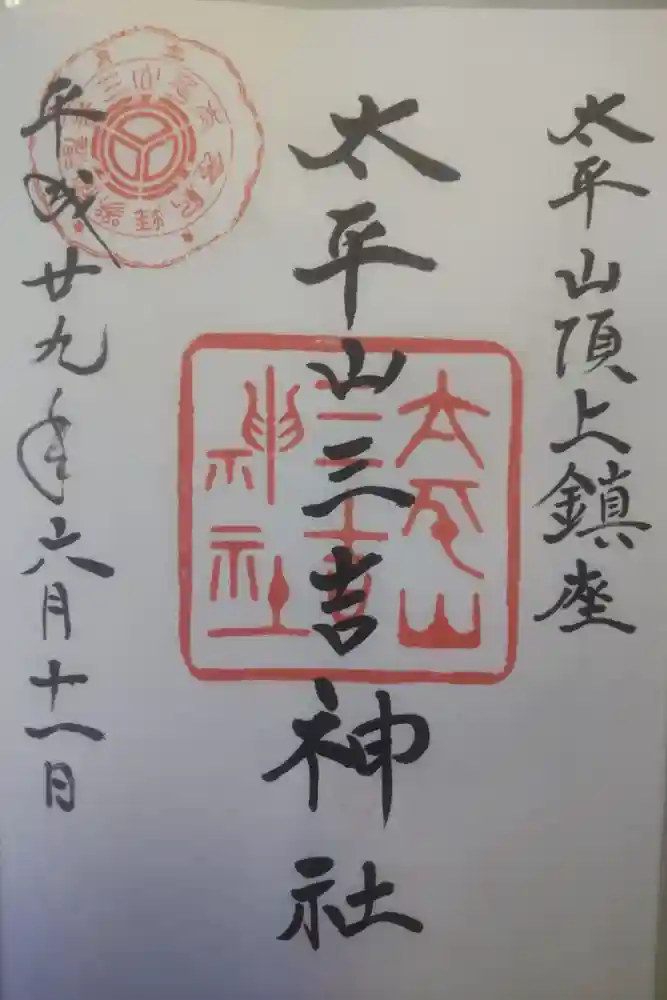 太平山頂上鎮座
太平山三吉神社
太平山
三吉
神社
平成廿九年六月十一日